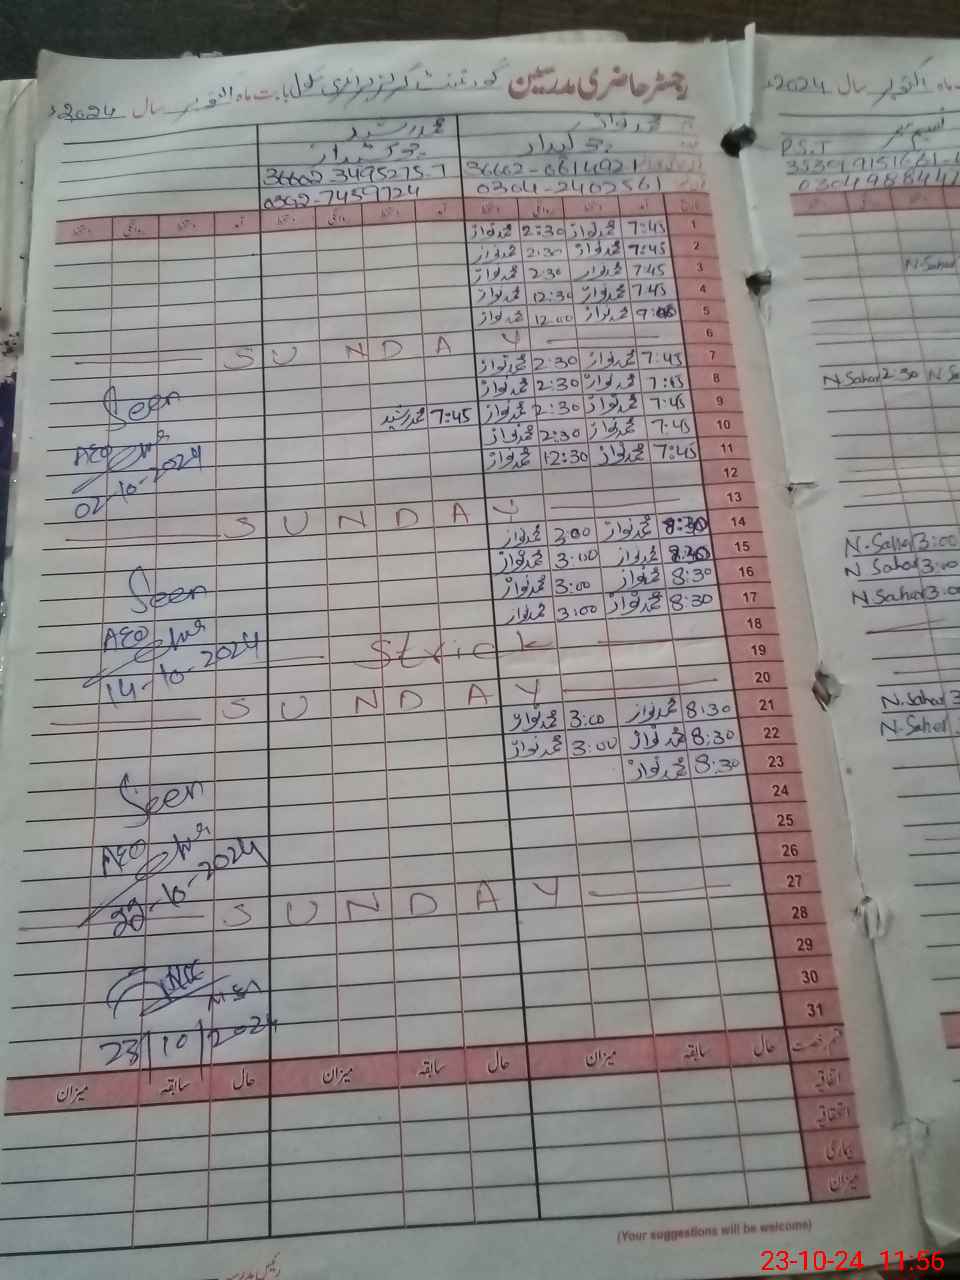 رجسٹر حاضری مدرسین گورنمنٹ گرلز پرائمری سکول بابت ماہ اکتوبر سال 2024ء
محمد نواز محمد رشید
چوکیدار
36602-0614921 36602-3495275-7
0304-2402561 0302-7459724
1 7:45 محمد نواز 2:30 محمد نواز
2 7:45 محمد نواز 2:30 محمد نواز
3 7:45 محمد نواز 2:30 محمد نواز
4 7:45 محمد نواز 12:30 محمد نواز
5 محمد نواز 12:00 محمد نواز
6 SUNDAY
7 7:45 محمد نواز 2:30 محمد نواز
8 7:45 محمد نواز 2:30 محمد نواز
9 7:45 محمد نواز 2:30 محمد نواز 7:45 محمد رشید
10 7:45 محمد نواز 2:30 محمد نواز
11 7:45 محمد نواز 12:30 محمد نواز
12
13 SUNDAY
14 8:30 محمد نواز 3:00 محمد نواز
15 8:30 محمد نواز 3:00 محمد نواز
16 8:30 محمد نواز 3:00 محمد نواز
17 8:30 محمد نواز 3:00 محمد نواز
18
19 Strick
20 SUNDAY
21 8:30 محمد نواز 3:00 محمد نواز
22 8:30 محمد نواز 3:00 محمد نواز
23 8:30 محمد نواز
24
25
26
27 SUNDAY
28
29
30
31
Seen
AEO
02-10-2024
Seen
AEO
14-10-2024
Seen
AEO
22-10-2024
23/10/2024
قسم رخصت حال سابقہ میزان حال سابقہ میزان حال سابقہ میزان
اتفاقیہ
استحقاقیہ
بیماری
میزان
(Your suggestions will be welcome)
رئیس مدرسہ
ماہ اکتوبر سال 2024ء
P.S.T
N-Sahar
N Sahar 2:30 N Sa
N-Sahar 3:00
N Sahar 3:00
N Sahar 3:00
N.Sahar 3
N-Sahar
23-10-24 11:56